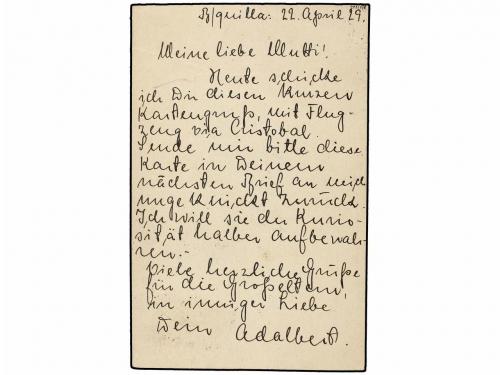 B/quilla: 22. April 29.
Meine liebe Mutti!
Heute schicke
ich Dir diesen kurzen
Kartengruß, mit Flug-
zeug via Cristobal.
Sende mir bitte diese
Karte in Deinem
nächsten Brief an mich
ungeknickt zurück.
Ich will sie der Kurio-
sität halber aufbewah-
ren.-
Viele herzliche Grüße
für die Großeltern,
in inniger Liebe
Dein Adalbert.